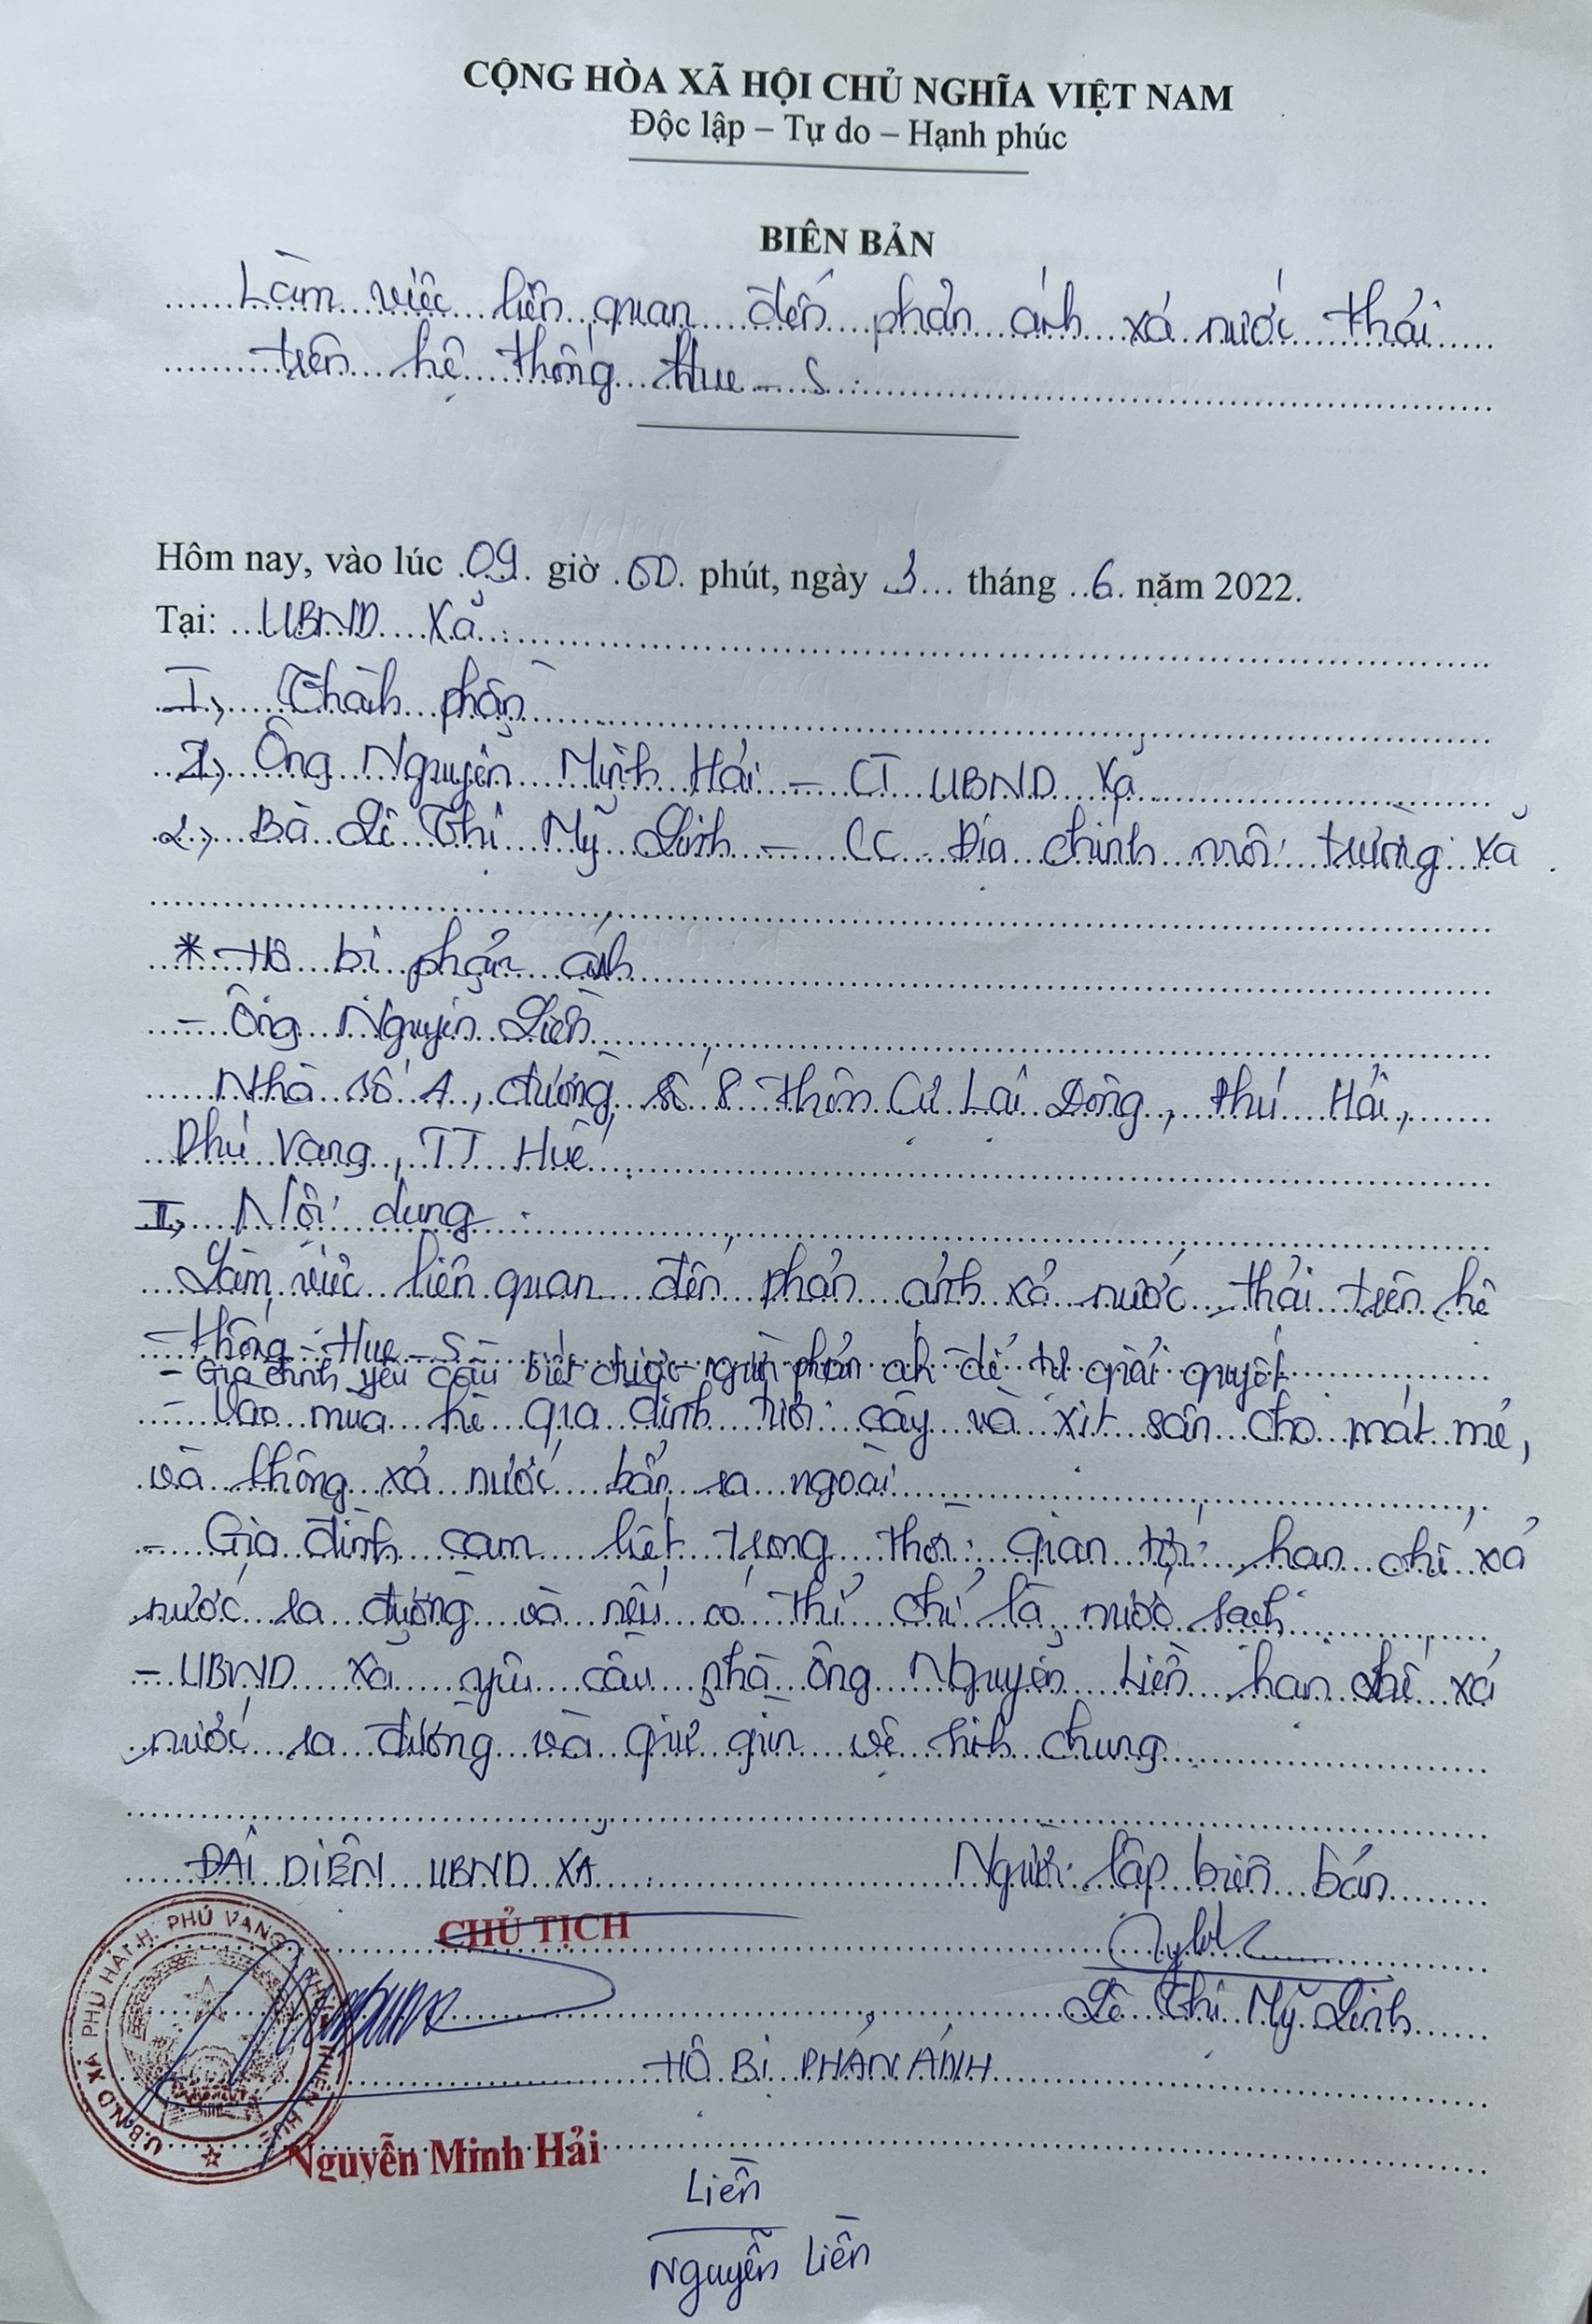 CỘNG HÒA XÃ HỘI CHỦ NGHĨA VIỆT NAM
Độc lập – Tự do – Hạnh phúc
BIÊN BẢN
Làm việc liên quan đến phản ánh xả nước thải
trên hệ thống Hue - S.
Hôm nay, vào lúc 09 giờ 00 phút, ngày 3 tháng 6 năm 2022.
Tại: UBND Xã
I, Thành phần
1, Ông Nguyễn Minh Hải - CT UBND Xã
2, Bà Lê Thị Mỹ Linh - CC Địa chính môi trường xã
* Hộ bị phản ánh
- Ông Nguyễn Liền
Nhà số 4, đường số 8 thôn Cự Lại Đông, Phú Hải,
Phú Vang, TT Huế
II, Nội dung
Làm việc liên quan đến phản ánh xả nước thải trên hệ
thống Hue - S
- Gia đình yêu cầu biết được người phản ánh để tự giải quyết
- Vào mùa hè gia đình tưới cây và xịt sân cho mát mẻ,
và không xả nước bẩn ra ngoài
- Gia đình cam kết trong thời gian tới hạn chế xả
nước ra đường và nếu có thì chỉ là nước sạch
- UBND xã yêu cầu nhà ông Nguyễn Liền hạn chế xả
nước ra đường và giữ gìn vệ sinh chung
ĐẠI DIỆN UBND XÃ Người lập biên bản
CHỦ TỊCH
Lê Thị Mỹ Linh
HỘ BỊ PHẢN ÁNH
U.B.N.D XÃ PHÚ HẢI H. PHÚ VANG THỪA THIÊN HUẾ
Nguyễn Minh Hải
Liền
Nguyễn Liền